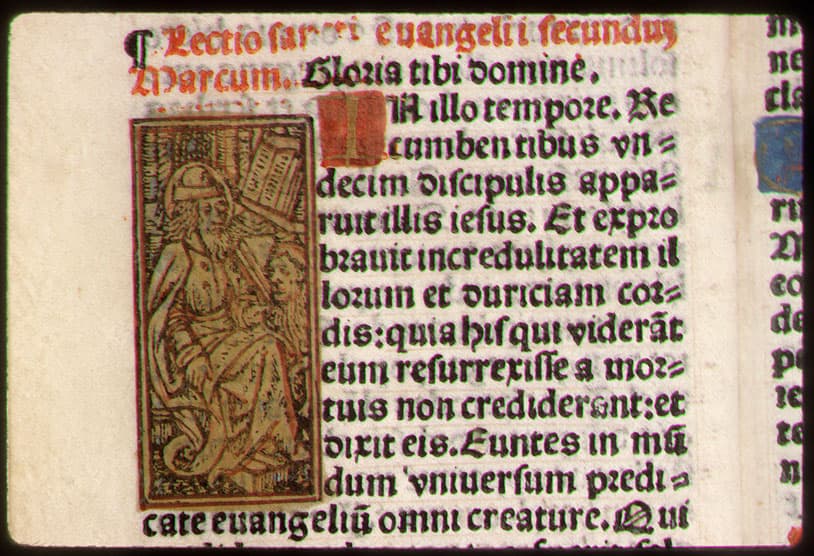 ¶ Lectio sancti euangelii secunduȝ
Marcum. Gloria tibi domine.
IN illo tempore. Re
cumbentibus vn=
decim discipulis appa=
ruit illis iesus. Et expro
brauit incredulitatem il
lorum et duriciam cor=
dis: quia his qui viderāt
eum resurrexisse a mor=
tuis non crediderant: et
dixit eis. Euntes in mū
dum vniuersum predi=
cate euangeliū omni creature. Qui